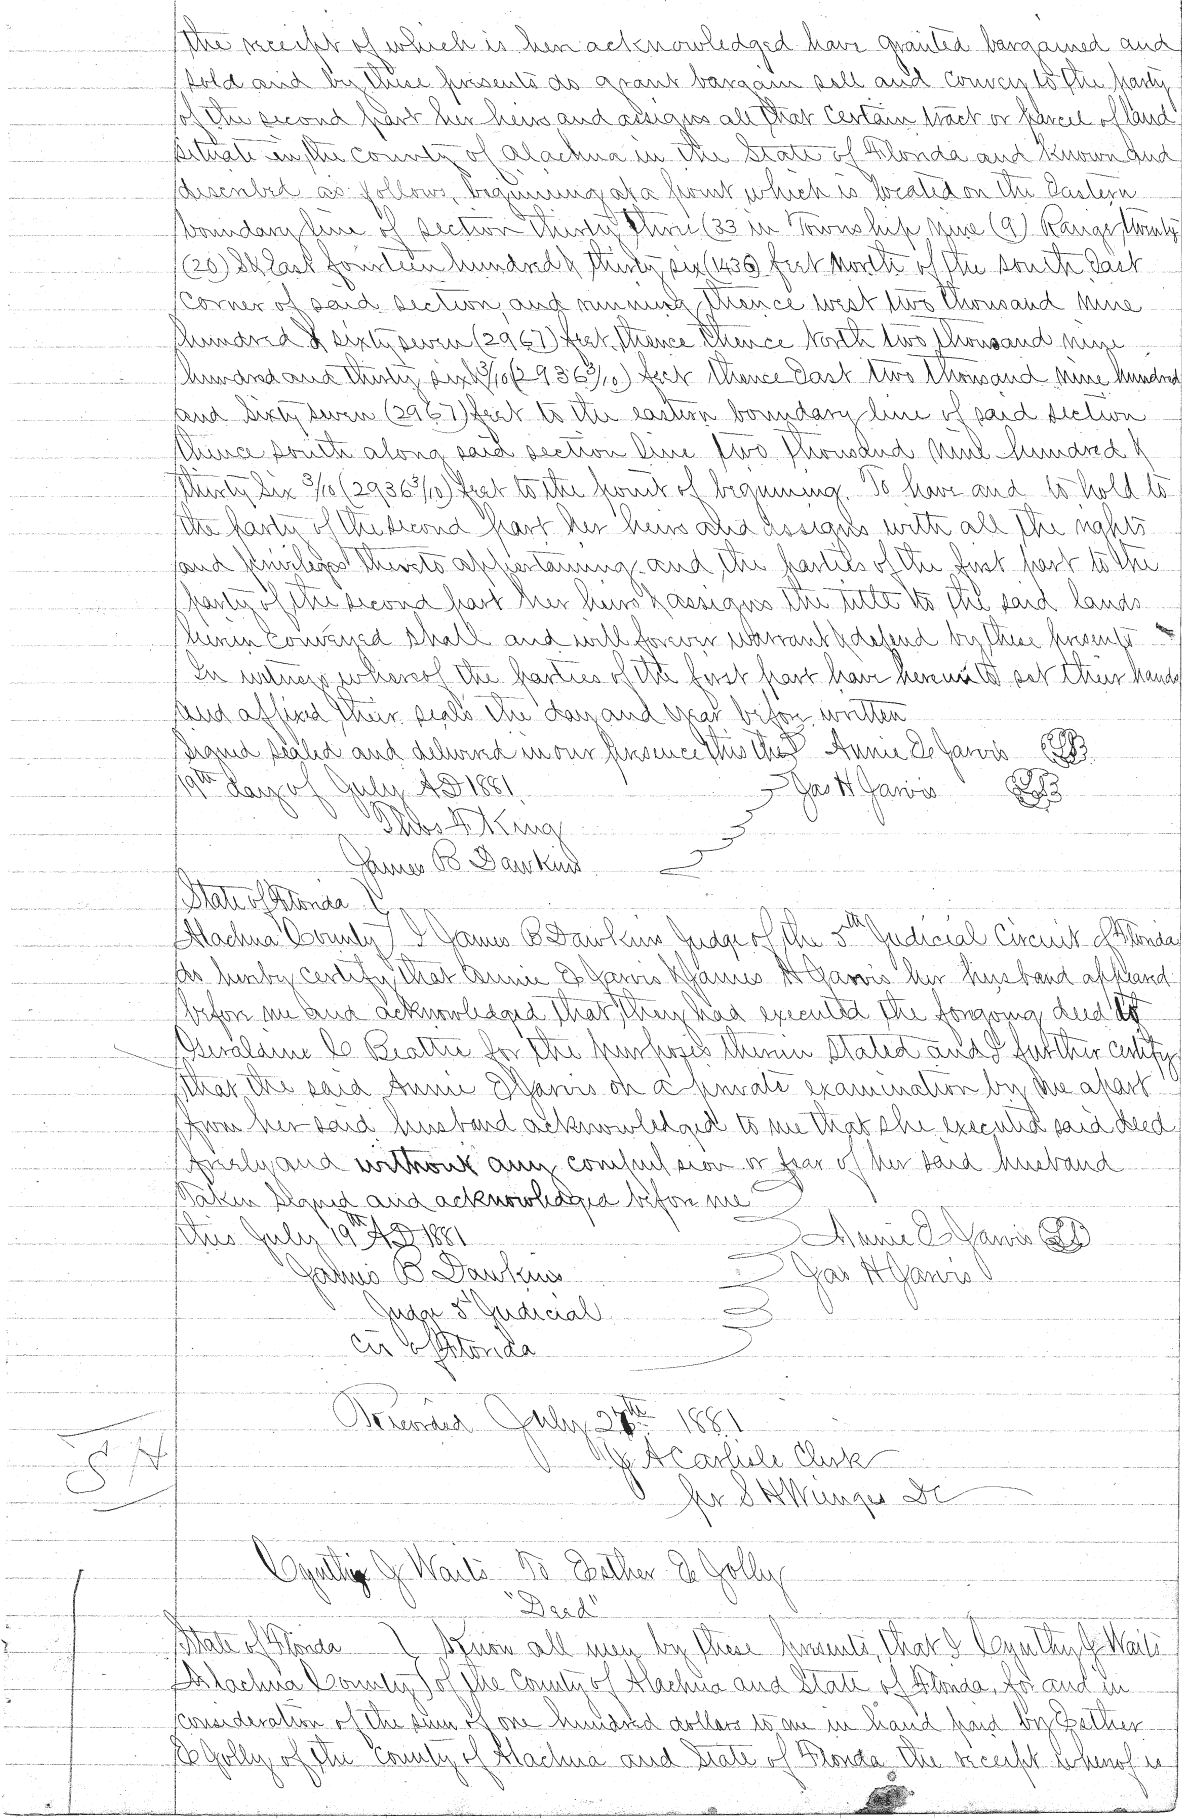 the receipt of which is her acknowledged have granted bargained and
sold and by these presents do grant bargain sell and convey to the party
of the second part her heirs and assigns all that certain tract or parcel of land
situate in the county of Alachua in the State of Florida and known and
described as follows, beginning at a point which is located on the Eastern
boundary line of section thirty three (33 in Township nine (9) Range twenty
(20) S & East fourteen hundred & thirty six (1436) feet North of the south East
corner of said section and running thence west two thousand nine
hundred & sixty seven (2967) feet, thence thence North two thousand nine
hundred and thirty six 3/10 (2936 3/10) feet thence East two thousand nine hundred
and sixty seven (2967) feet to the eastern boundary line of said section
thence south along said section line two thousand nine hundred &
thirty six 3/10 (2936 3/10) feet to the point of beginning. To have and to hold to
the party of the second part her heirs and assigns with all the rights
and privileges thereto appertaining and the parties of the first part to the
party of the second part her heirs & assigns the title to the said lands
herein conveyed shall and will forever warrant & defend by these presents
In witness whereof the parties of the first part have hereunto set their hands
and affixed their seals the day and year before written
Signed sealed and delivered in our presence this the } Annie E Jarvis LS
19th day of July AD 1881 Jas H Jarvis LS
Thos F King
James B Dawkins
State of Florida }
Alachua County } I James B Dawkins Judge of the 5th Judicial Circuit of Florida
do hereby certify that Annie E Jarvis & James H Jarvis her husband appeared
before me and acknowledged that they had executed the forgoing deed to
Geraldine C Beattie for the purposes therein stated and I further certify
that the said Annie E Jarvis on a private examination by me apart
from her said husband acknowledged to me that she executed said deed
freely and without any compulsion or fear of her said husband
Taken signed and acknowledged before me
this July 19th AD 1881 Annie E Jarvis LS
James B Dawkins Jas H Jarvis
Judge 5" Judicial
Cir of Florida
Recorded July 27th 1881
J A Carlisle Clerk
S H
per S H Wienges DC
Cynthy J Waits To Esther E Jolly
"Deed"
State of Florida } Know all men by these presents, that I Cynthy J Waits
Alachua County } of the County of Alachua and State of Florida, for and in
consideration of the sum of one hundred dollars to me in hand paid by Esther
E Jolly of the County of Alachua and State of Florida the receipt whereof is